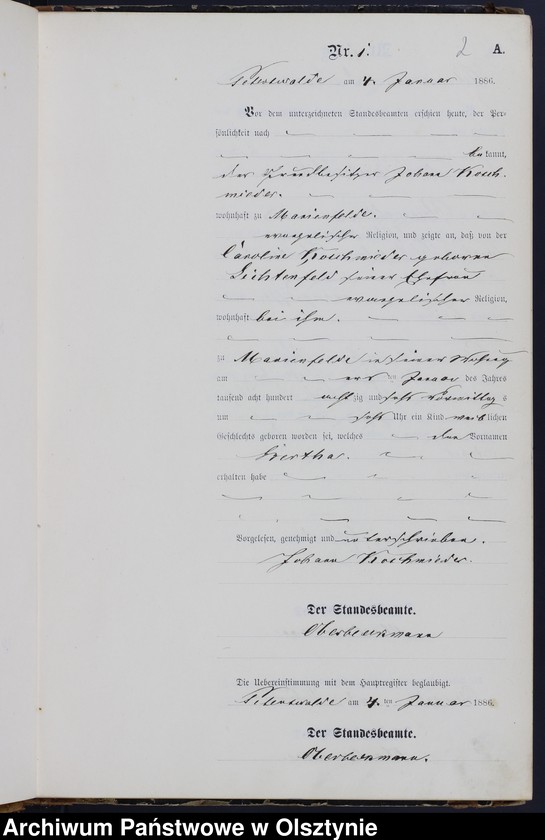 Nr. 1. 2 A.
am 4. Januar 1886.
Vor dem unterzeichneten Standesbeamten erschien heute, der Per-
sönlichkeit nach
bekannt,
der Grundbesitzer Johann Kosch-
mieder.
wohnhaft zu Marienfelde.
evangelischer Religion, und zeigte an, daß von der
Caroline Koschmieder geborene
Lichtenfeld seiner Ehefrau
evangelischer Religion,
wohnhaft bei ihm.
zu Marienfelde in seiner Wohnung
am ersten Januar des Jahres
tausend acht hundert achtzig und sechs Vormittags
um sechs Uhr ein Kind weiblichen
Geschlechts geboren worden sei, welches den Vornamen
Bertha.
erhalten habe
Vorgelesen, genehmigt und unterschrieben.
Johann Koschmieder.
Der Standesbeamte.
Oberbeckmann
Die Uebereinstimmung mit dem Hauptregister beglaubigt.
am 4.ten Januar 1886.
Der Standesbeamte.
Oberbeckmann.
Archiwum Państwowe w Olsztynie